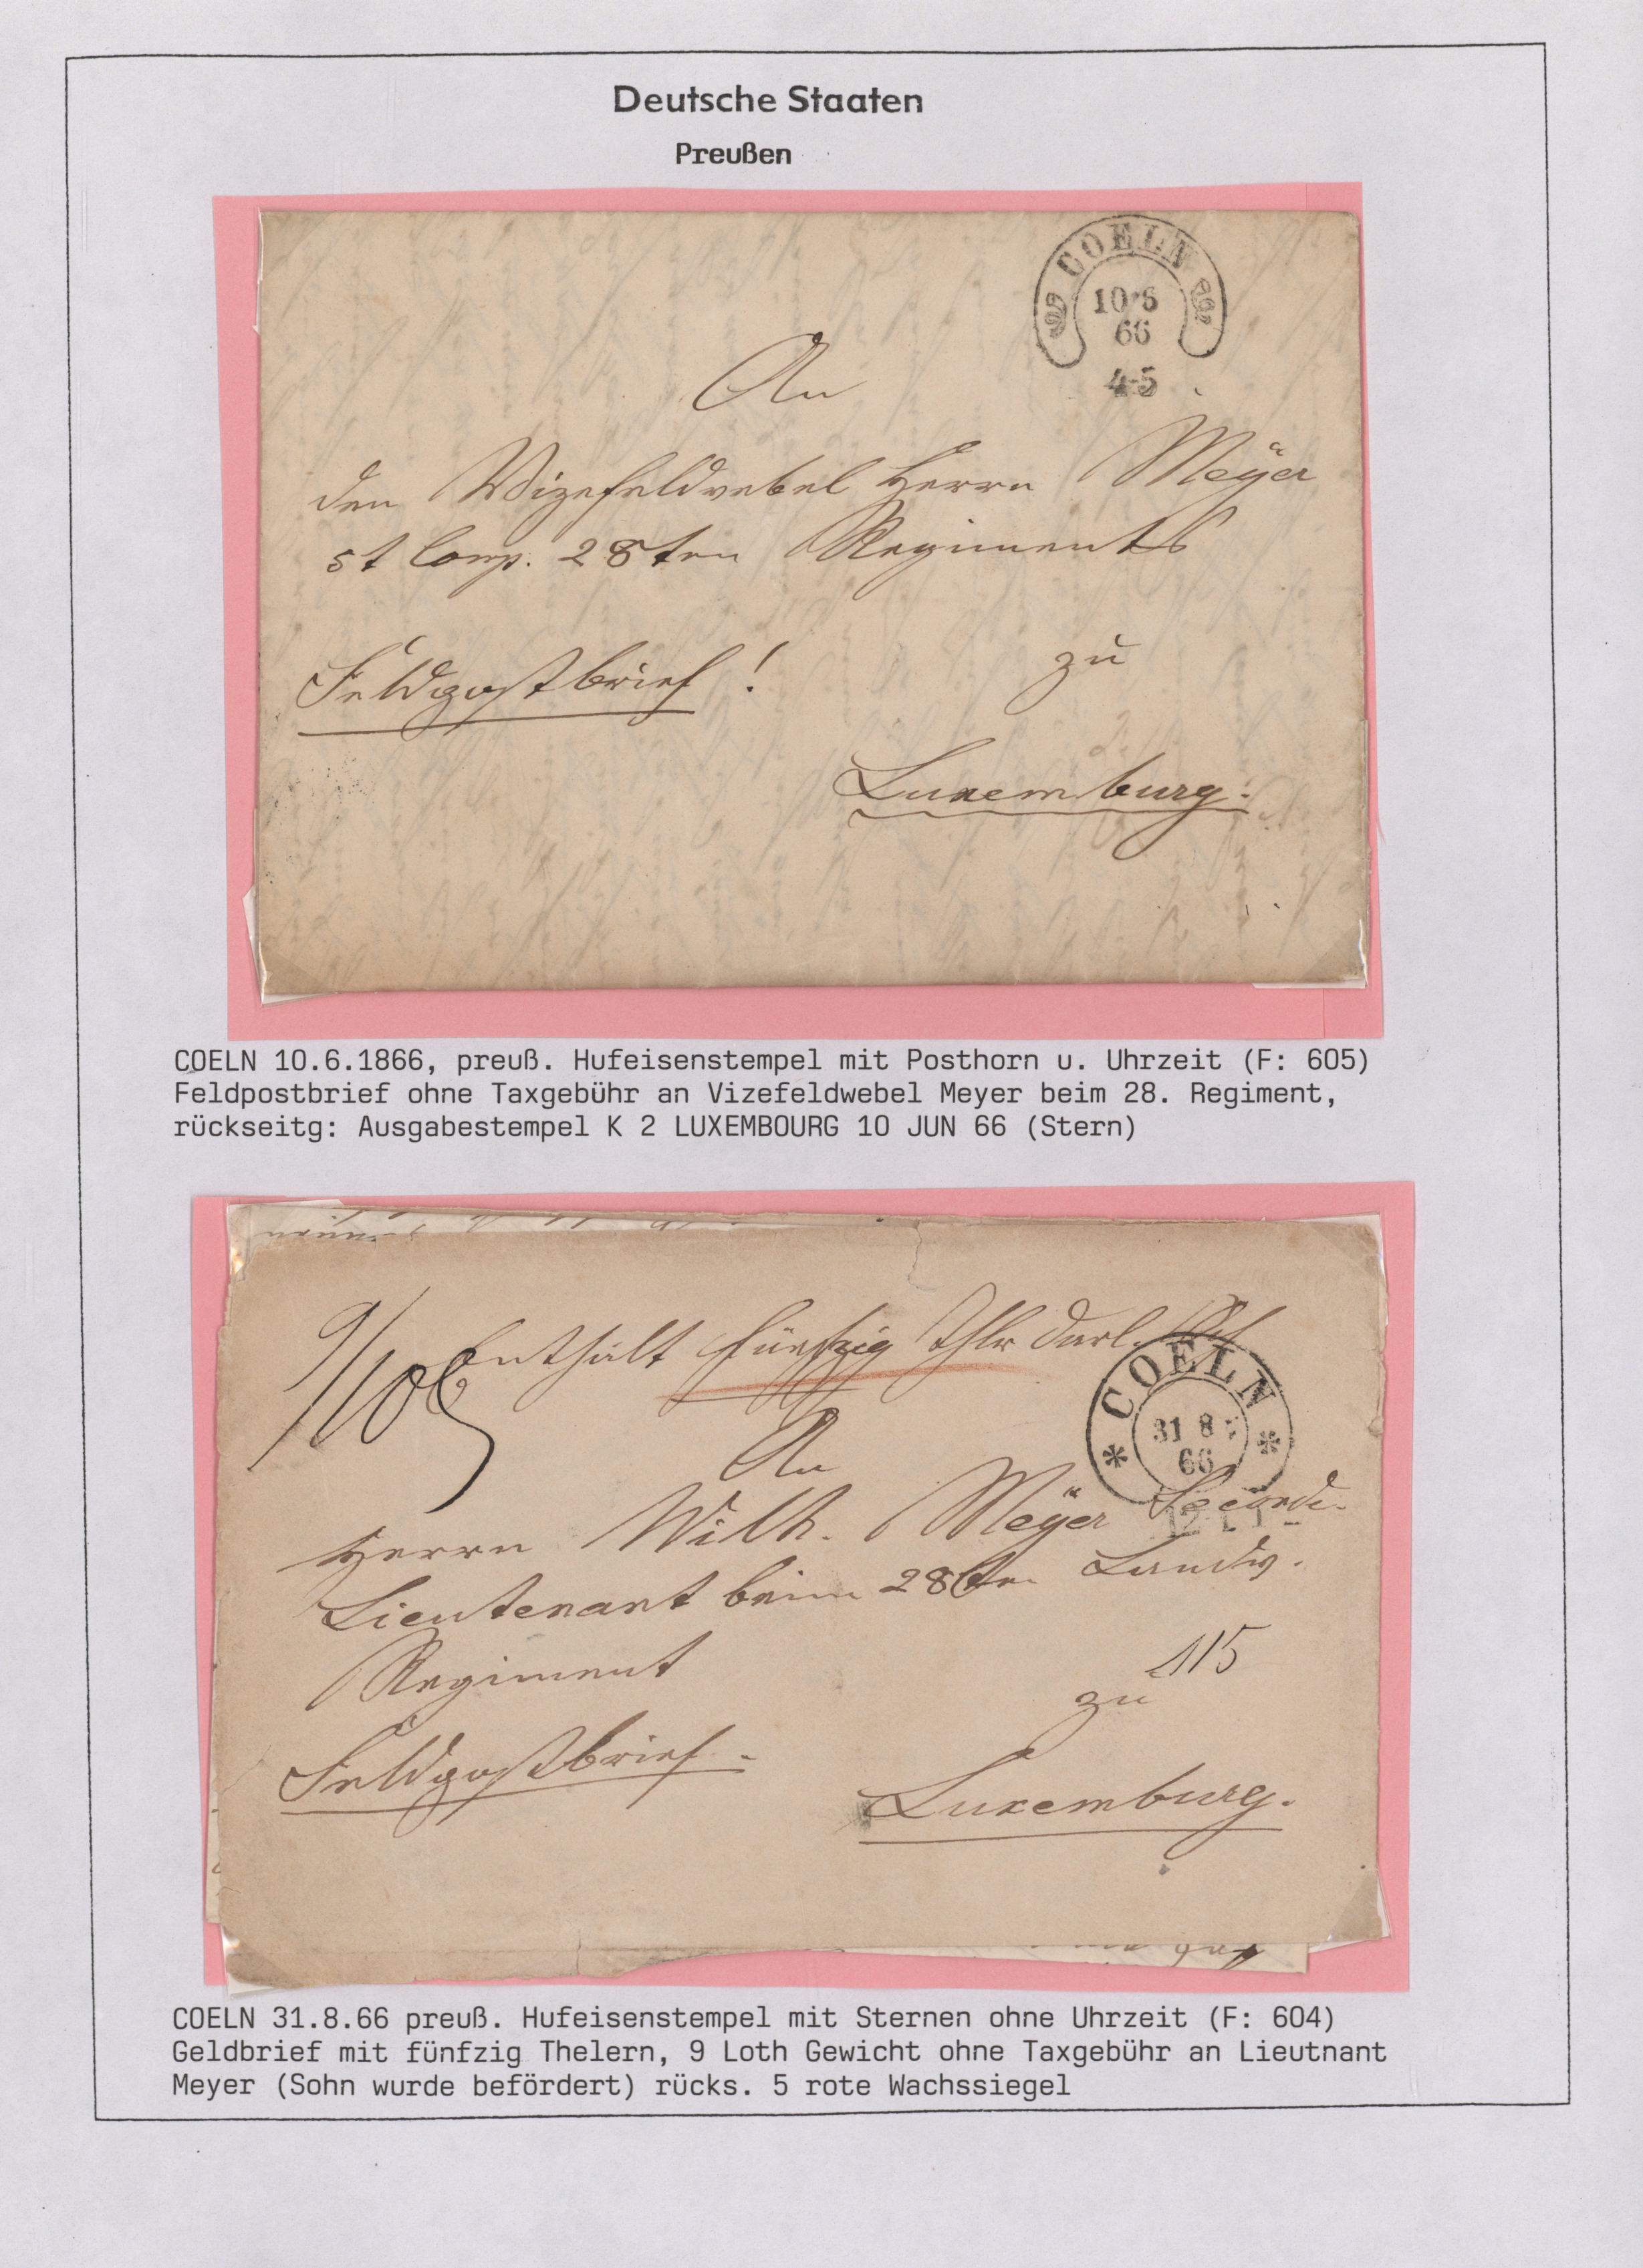 Deutsche Staaten
Preußen
COELN
10 6
66
4-5
An
den Vizefeldwebel Herrn Meÿer
5t Comp. 28ten Regiments
Feldpostbrief!
zu
Luxemburg.
COELN 10.6.1866, preuß. Hufeisenstempel mit Posthorn u. Uhrzeit (F: 605)
Feldpostbrief ohne Taxgebühr an Vizefeldwebel Meyer beim 28. Regiment,
rückseitg: Ausgabestempel K 2 LUXEMBOURG 10 JUN 66 (Stern)
Enthält fünfzig Thlr
COELN
31 8
66
An
Herrn Wilh. Meÿer Seconde-
Lieutenant beim 28ten Landw.
Regiment
115
zu
Feldpostbrief.
Luxemburg.
COELN 31.8.66 preuß. Hufeisenstempel mit Sternen ohne Uhrzeit (F: 604)
Geldbrief mit fünfzig Thelern, 9 Loth Gewicht ohne Taxgebühr an Lieutnant
Meyer (Sohn wurde befördert) rücks. 5 rote Wachssiegel